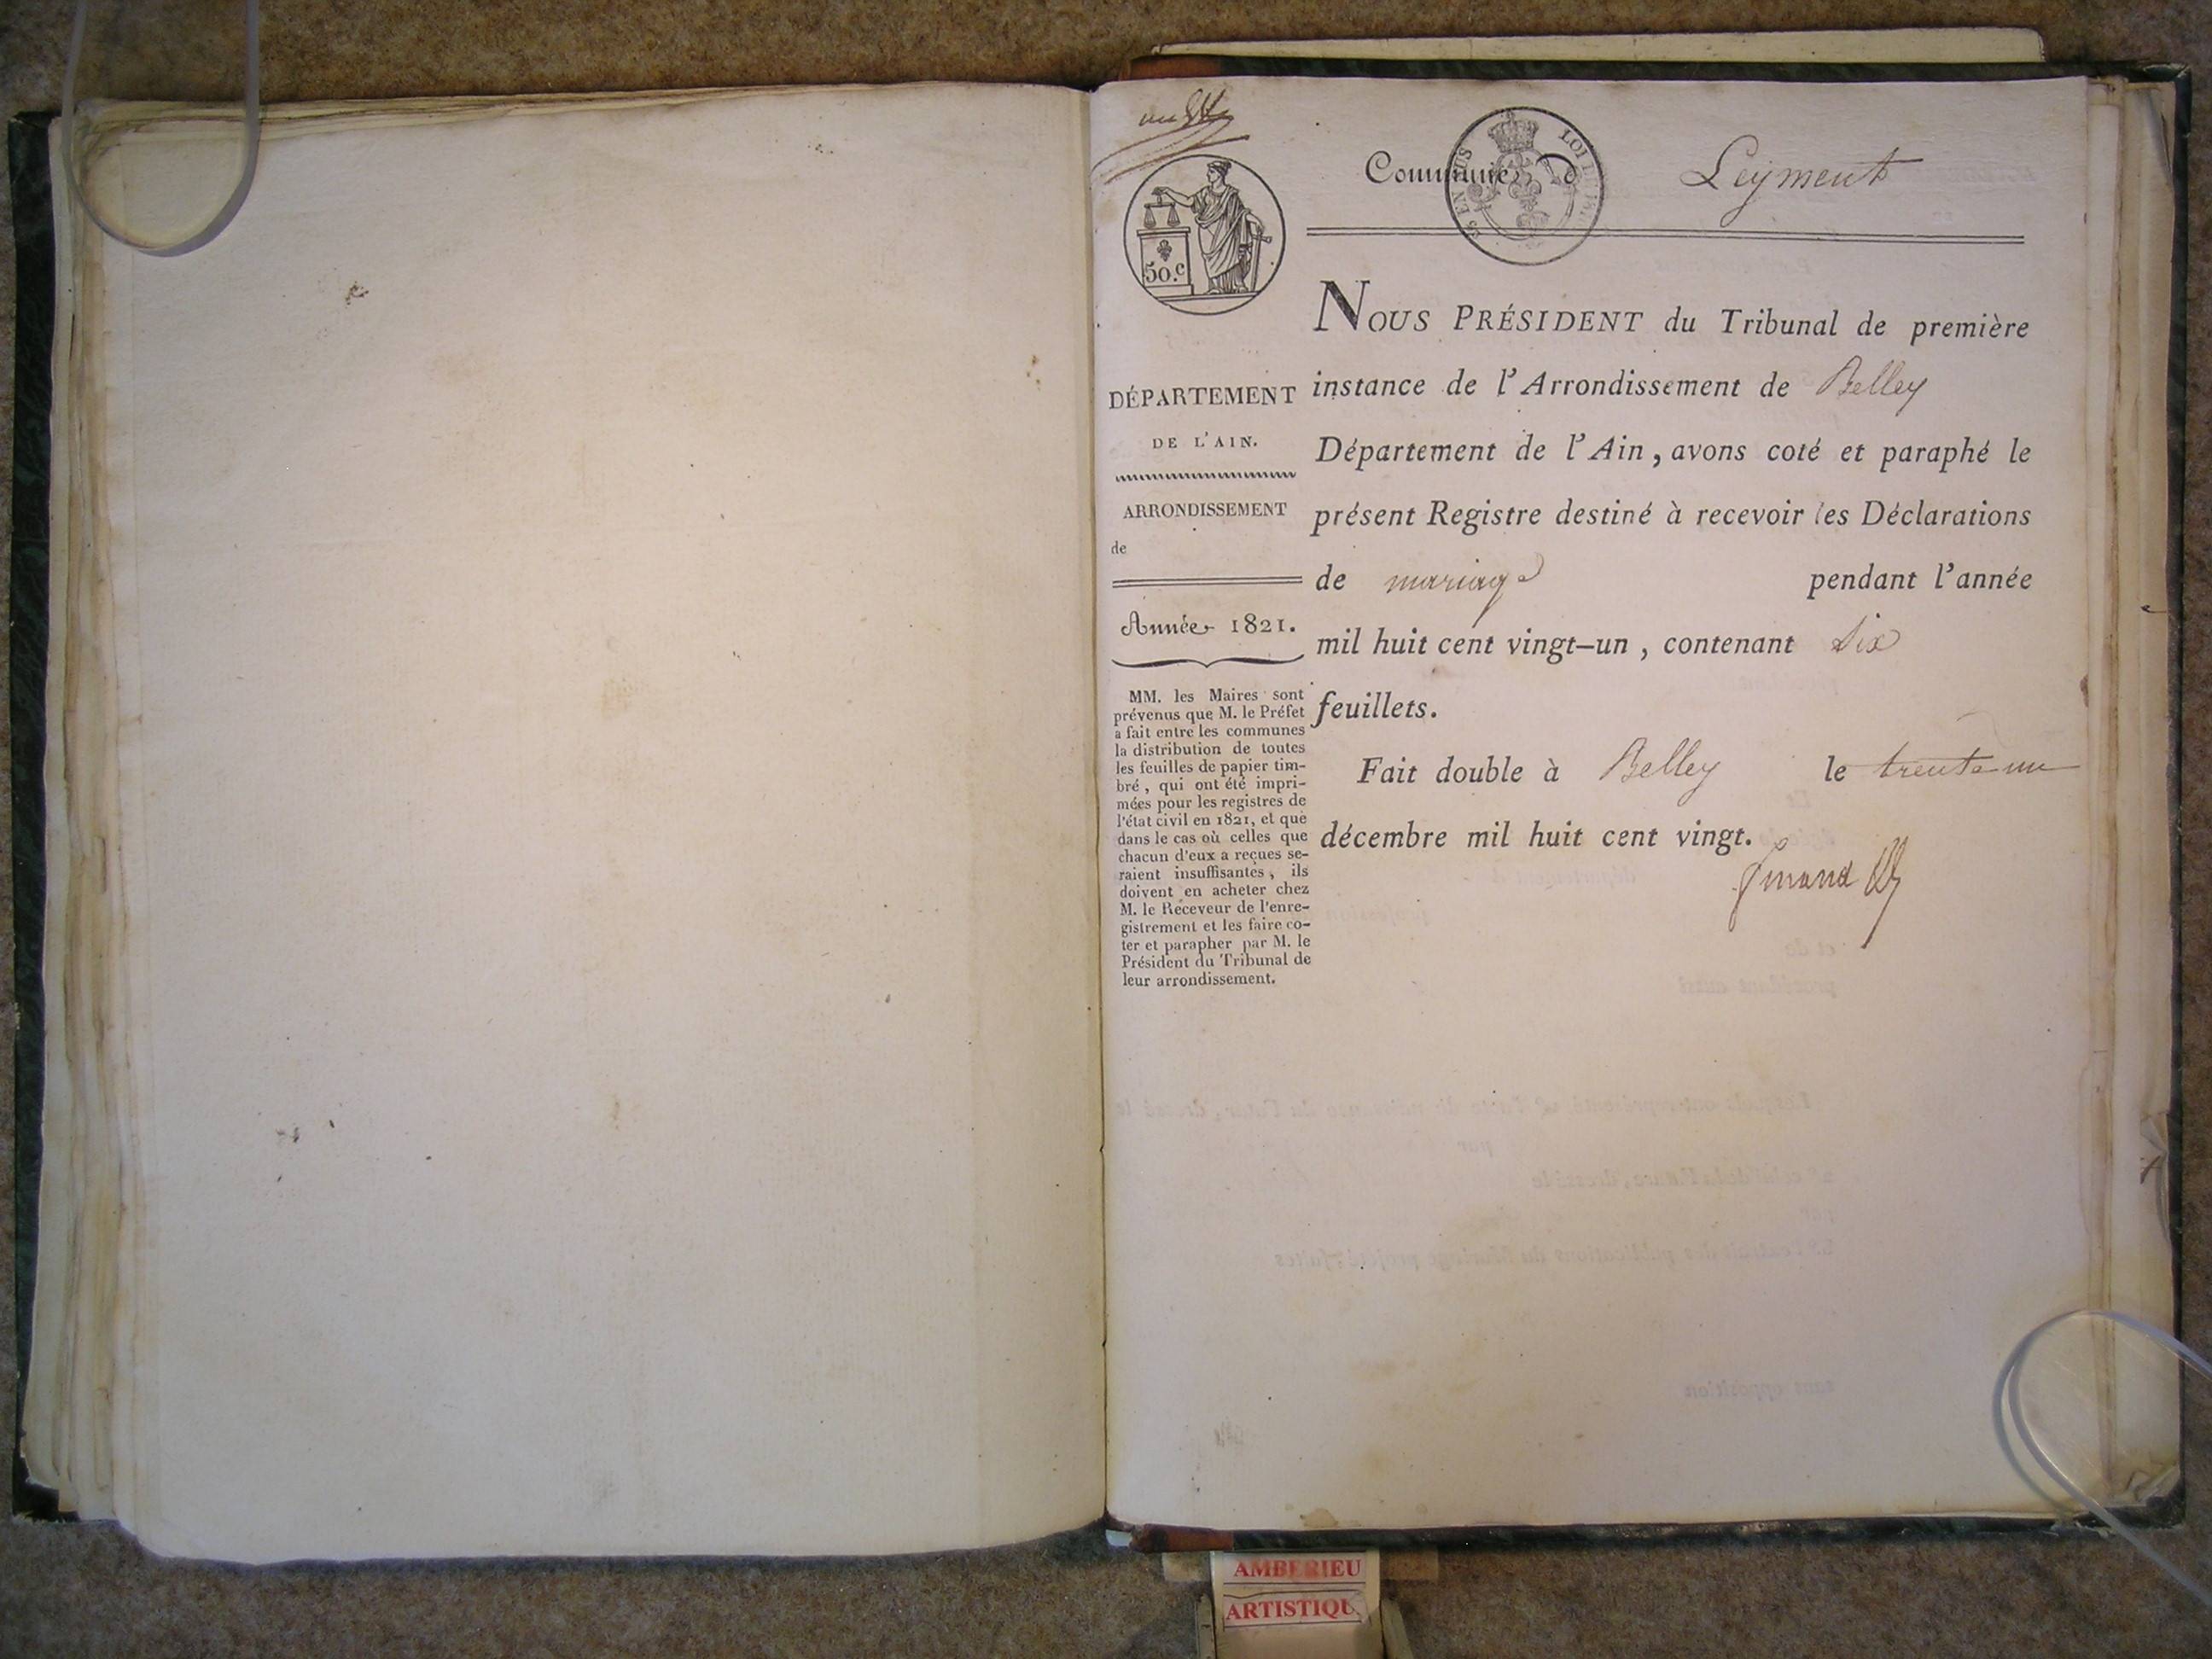 Commune d Leyment
50.c
NOUS PRÉSIDENT du Tribunal de première
instance de l'Arrondissement de Belley
Département de l'Ain, avons coté et paraphé le
présent Registre destiné à recevoir les Déclarations
de mariage pendant l'année
mil huit cent vingt-un, contenant Six
feuillets.
Fait double à Belley le trente un
décembre mil huit cent vingt.
DÉPARTEMENT
DE L'AIN.
ARRONDISSEMENT
de
Année 1821.
MM. les Maires sont
prévenus que M. le Préfet
a fait entre les communes
la distribution de toutes
les feuilles de papier tim-
bré, qui ont été impri-
mées pour les registres de
l'état civil en 1821, et que
dans le cas où celles que
chacun d'eux a reçues se-
raient insuffisantes, ils
doivent en acheter chez
M. le Receveur de l'enre-
gistrement et les faire co-
ter et parapher par M. le
Président du Tribunal de
leur arrondissement.
AMBERIEU
ARTISTIQU